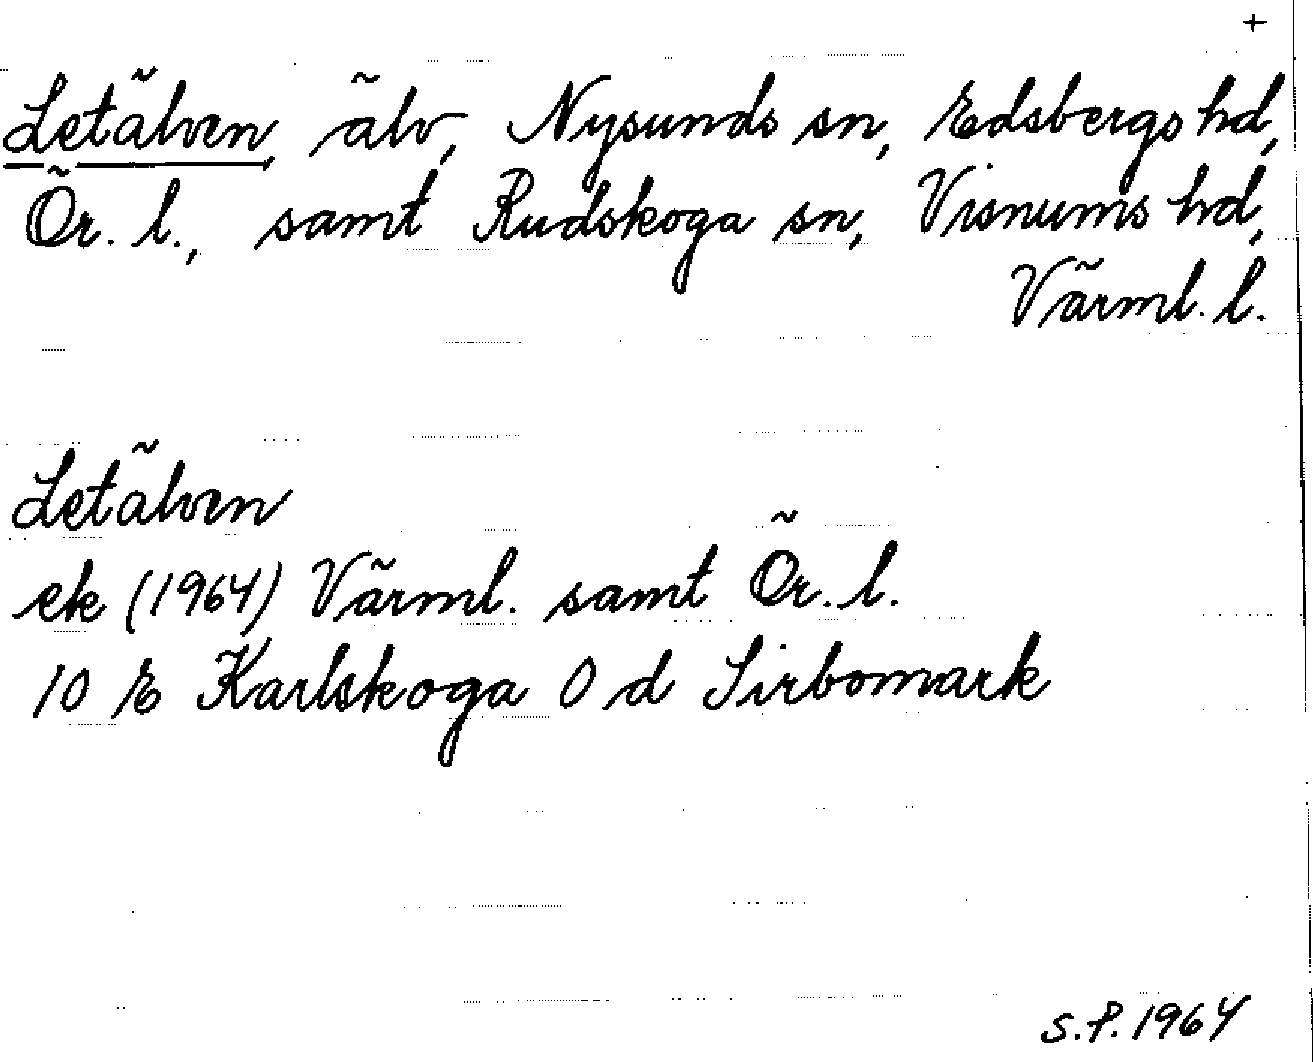 +
Letälven, älv, Nysunds sn, Edsbergs hd,
Ör. l., samt Rudskoga sn, Visnums hd,
Värml. l.
Letälven
ek (1964) Värml. samt Ör. l.
10 E Karlskoga 0 d Sirbomark
S.P. 1964